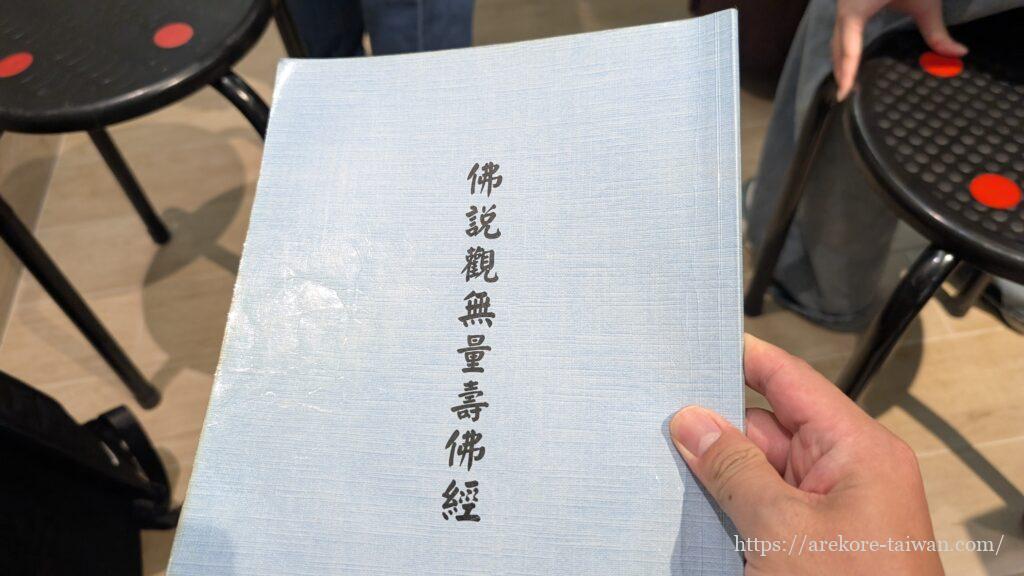 佛說觀無量壽佛經
https://arekore-taiwan.com/